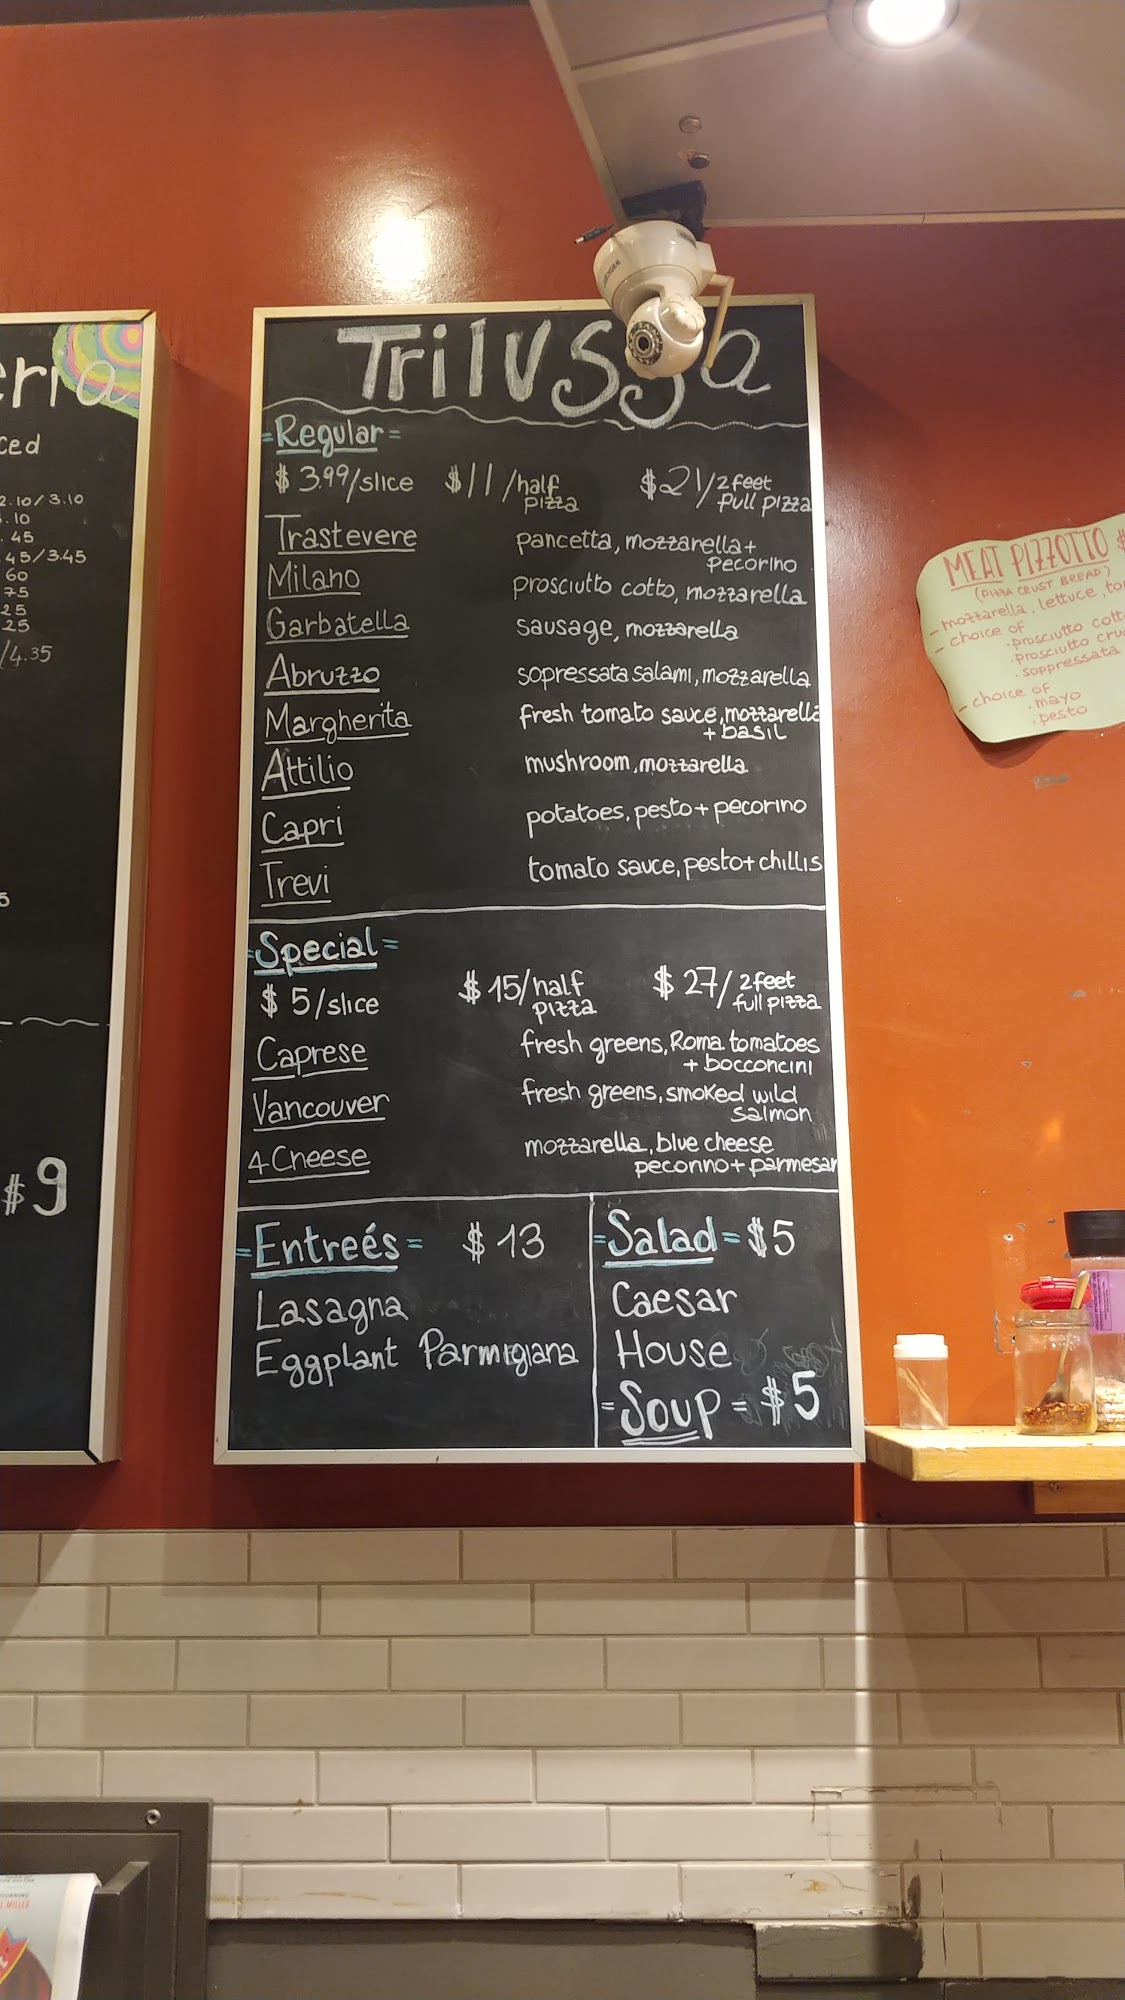 ced
2.10/3.10
.10
.45
.45/3.45
60
75
25
25
/4.35
$9
Trilussa
=Regular=
$3.99/slice $11/half pizza $21/2feet full pizza
Trastevere pancetta, mozzarella+
pecorino
Milano prosciutto cotto, mozzarella
Garbatella sausage, mozzarella
Abruzzo sopressata salami, mozzarella
Margherita fresh tomato sauce, mozzarella
+ basil
Attilio mushroom, mozzarella
Capri potatoes, pesto+ pecorino
Trevi tomato sauce, pesto+chillis
=Special=
$5/slice $15/half pizza $27/2feet full pizza
Caprese fresh greens, Roma tomatoes
+ bocconcini
Vancouver fresh greens, smoked wild
salmon
4 Cheese mozzarella, blue cheese
pecorino+ parmesan
=Entreés= $13
Lasagna
Eggplant Parmigiana
=Salad= $5
Caesar
House
=Soup= $5
MEAT PIZZOTTO $
(PIZZA CRUST BREAD)
- mozzarella, lettuce, to
- choice of
. prosciutto cott
. prosciutto cru
. soppressata
- choice of
. mayo
. pesto
MILLER